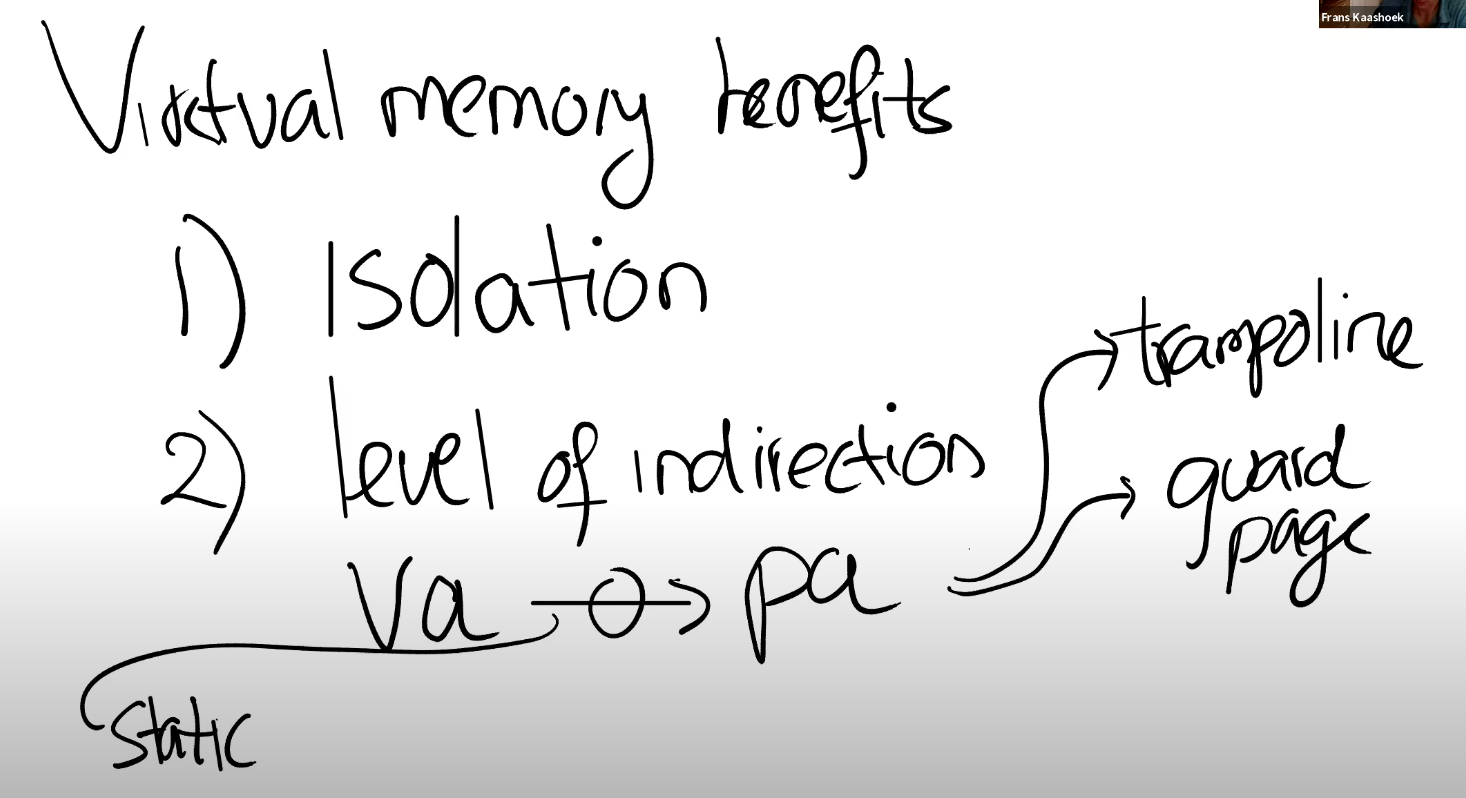 Frans Kaashoek
Virtual memory benefits
1) Isolation
2) level of indirection
va → pa
trampoline
guard
page
static